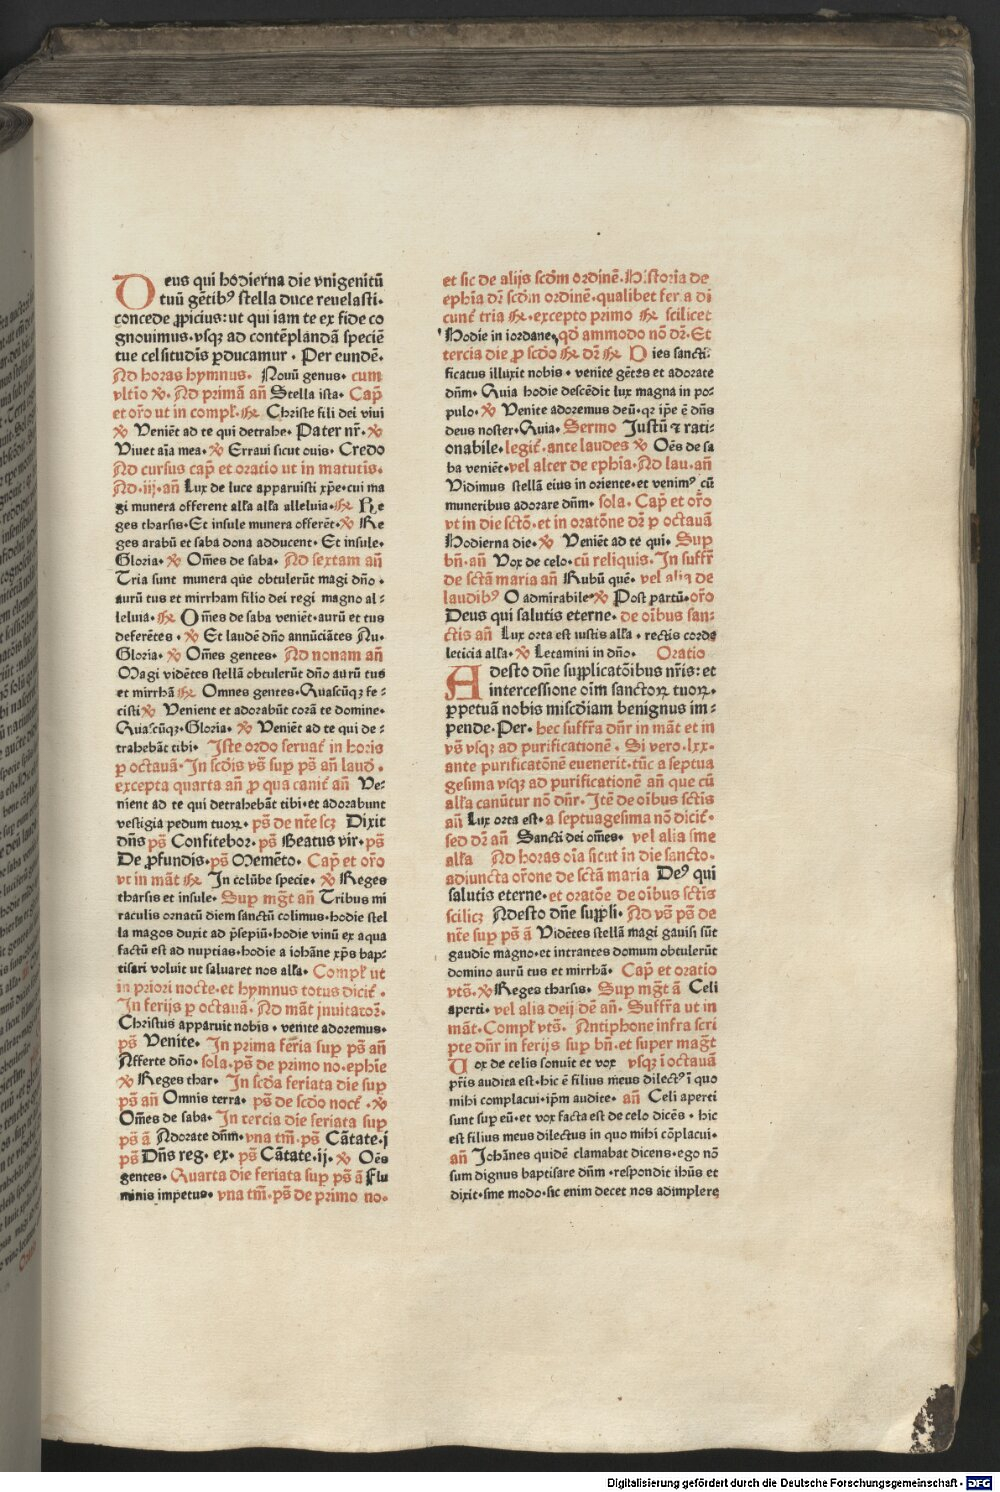 Deus qui hodierna die vnigenitū
tuū gētibꝰ stella duce reuelasti·
concede ꝓpicius: ut qui iam te ex fide co
gnouimus· vsqꝫ ad contēplandā speciē
tue celsitudīs ꝑducamur · Per eundē·
Ad horas hymnus· Novū genus· cum
vltio ℣· Ad primā añ Stella ista· Cap̄
et or̄o ut in compl̄· ℟ Christe fili dei viui
℣ Veniēt ad te qui detrahe· Pater nr̄· ℣
Viuet aīa mea· ℣ Erraui sicut ouis· Credo
Ad cursus cap̄ et oratio ut in matutīs·
Ad·iij·añ Lux de luce apparuisti xp̄e· cui ma
gi munera offerent alľa alľa alleluia· ℟ Re
ges tharsis· Et insule munera offerēt· ℣ Re
ges arabū et saba dona adducent· Et insule·
Gloria· ℣ Om̄es de saba· Ad sextam añ
Tria sunt munera que obtulerūt magi dn̄o·
aurū tus et mirrham filio dei regi magno al-
leluia· ℟ Om̄es de saba veniēt· aurū et tus
deferētes· ℣ Et laudē dn̄o annūciātes Au·
Gloria· ℣ Om̄es gentes· Ad nonam añ
Magi vidētes stellā obtulerūt dn̄o aurū tus
et mirrhā ℟ Omnes gentes· Quascūqꝫ fe-
cisti ℣ Venient et adorabūt corā te domine·
Quascūqꝫ· Gloria· ℣ Veniēt ad te qui de-
trahebāt tibi· Iste ordo seruat̄ in horis
ꝑ octauā· In scd̄is vs̄ sup̄ ps̄ añ laud̄·
excepta quarta añ ꝓ qua canit̄ añ Ve-
nient ad te qui detrahebāt tibi· et adorabunt
vestigia pedum tuoꝝ· ps̄ de nr̄e scꝫ Dixit
dn̄s ps̄ Confitebor· ps̄ Beatus vir· ps̄
De ꝓfundis· ps̄ Memēto· Cap̄ et or̄o
vt in māt ℟ In colūbe specie· ℣ Reges
tharsis et insule· Sup̄ mḡt añ Tribus mi
raculis ornatū diem sanctū colimus· hodie stel
la magos duxit ad p̄sepiū· hodie vinū ex aqua
factū est ad nuptias· hodie a iohāne xp̄s bap-
tisari voluit ut saluaret nos alľa· Compl̄ ut
in priori nocte· et hymnus totus dicit̄·
In ferijs ꝑ octauā· Ad māt jnuitator̄·
Christus apparuit nobis· venite adoremus·
ps̄ Venite· In prima fēria sup̄ ps̄ añ
Afferte dn̄o· sola· ps̄ de primo no· ephie
℣ Reges thar· In scd̄a feriata die sup̄
ps̄ añ Omnis terra· ps̄ de scd̄o noct̄· ℣
Om̄es de saba· In tercia die feriata sup̄
ps̄ ā Adorate dn̄m· vna tm̄· ps̄ Cātate·j
ps̄ Dn̄s reg· ex· ps̄ Cātate·ij· ℣ Oēs
gentes· Quarta die feriata sup̄ ps̄ ā Flu
minis impetus· vna tm̄· ps̄ de primo no·
et sic de alijs scd̄m ordinē· Historia de
ephīa dr̄ scd̄m ordinē· qualibet feria di
cunt̄ tria ℟· excepto primo ℟ scilicet
Hodie in iordane· qd̄ ammodo nō dr̄· Et
tercia die ꝓ scd̄o ℟ dr̄ ℟ Dies sancti
ficatus illuxit nobis· venite gētes et adorate
dn̄m· Quia hodie descēdit lux magna in po-
pulo· ℣ Venite adoremus deū· qꝛ ip̄e ē dn̄s
deus noster· Quia· Sermo Justū ⁊ rati-
onabile· legit̄· ante laudes ℣ Oēs de sa
ba veniēt· vel alter de ephīa· Ad lau· añ
Vidimus stellā eius in oriente· et venimꝰ cū
muneribus adorare dn̄m· sola· Cap̄ et or̄o
vt in die sctō· et in oratōne dr̄ ꝑ octauā
Hodierna die· ℣ Veniēt ad te qui· Sup̄
bn̄· añ Vox de celo· cū reliquis· In suffr̄
de sctā maria añ Rubū quē· vel alia de
laudibꝰ O admirabile· ℣ Post partū· or̄o
Deus qui salutis eterne· de oībus san-
ctis añ Lux orta est iustis alľa· rectis corde
leticia alľa· ℣ Letamini in dn̄o· Oratio
Adesto dn̄e supplicatōibus nr̄is: et
intercessione oīm sanctoꝝ tuoꝝ·
ꝑpetuā nobis misc̄diam benignus im-
pende· Per· hec suffr̄a dn̄r in māt et in
vs̄ vsqꝫ ad purificationē· Si vero·lxx·
ante purificatōnē euenerit· tūc a septua
gesima vsqꝫ ad purificationē añ que cū
alľa canūtur nō dn̄r· Itē de oībus sctīs
añ Lux orta est· a septuagesima nō dicit̄·
sed dr̄ añ Sancti dei om̄es· vel alia sine
alľa Ad horas oīa sicut in die sancto·
adiuncta or̄one de sctā maria Deꝰ qui
salutis eterne· et oratōe de oībus sctīs
scilicꝫ Adesto dn̄e suppli· Ad vs̄ ps̄ de
nr̄e sup̄ ps̄ ā Vidētes stellā magi gauisi sūt
gaudio magno· et intrantes domum obtulerūt
domino aurū tus et mirrhā· Cap̄ et oratio
vts̄· ℣ Reges tharsis· Sup̄ mḡt ā Celi
aperti· vel alia deij dē añ· Suffr̄a ut in
māt· Compl̄ vts̄· Antiphone infra scri
pte dn̄r in ferijs sup̄ bn̄· et super magt̄
Vox de celis sonuit et vox vsqꝫ ī octauā
pr̄is audita est· hic ē filius meus dilectꝰ ī quo
mihi complacui· ip̄m audite· añ Celi aperti
sunt sup̄ eū· et vox facta est de celo dicēs· hic
est filius meus dilectus in quo mihi cōplacui·
añ Johānes quidē clamabat dicens· ego nō
sum dignus baptisare dn̄m· respondit ihūs et
dixit· sine modo· sic enim decet nos adimplere
Digitalisierung gefördert durch die Deutsche Forschungsgemeinschaft - DFG